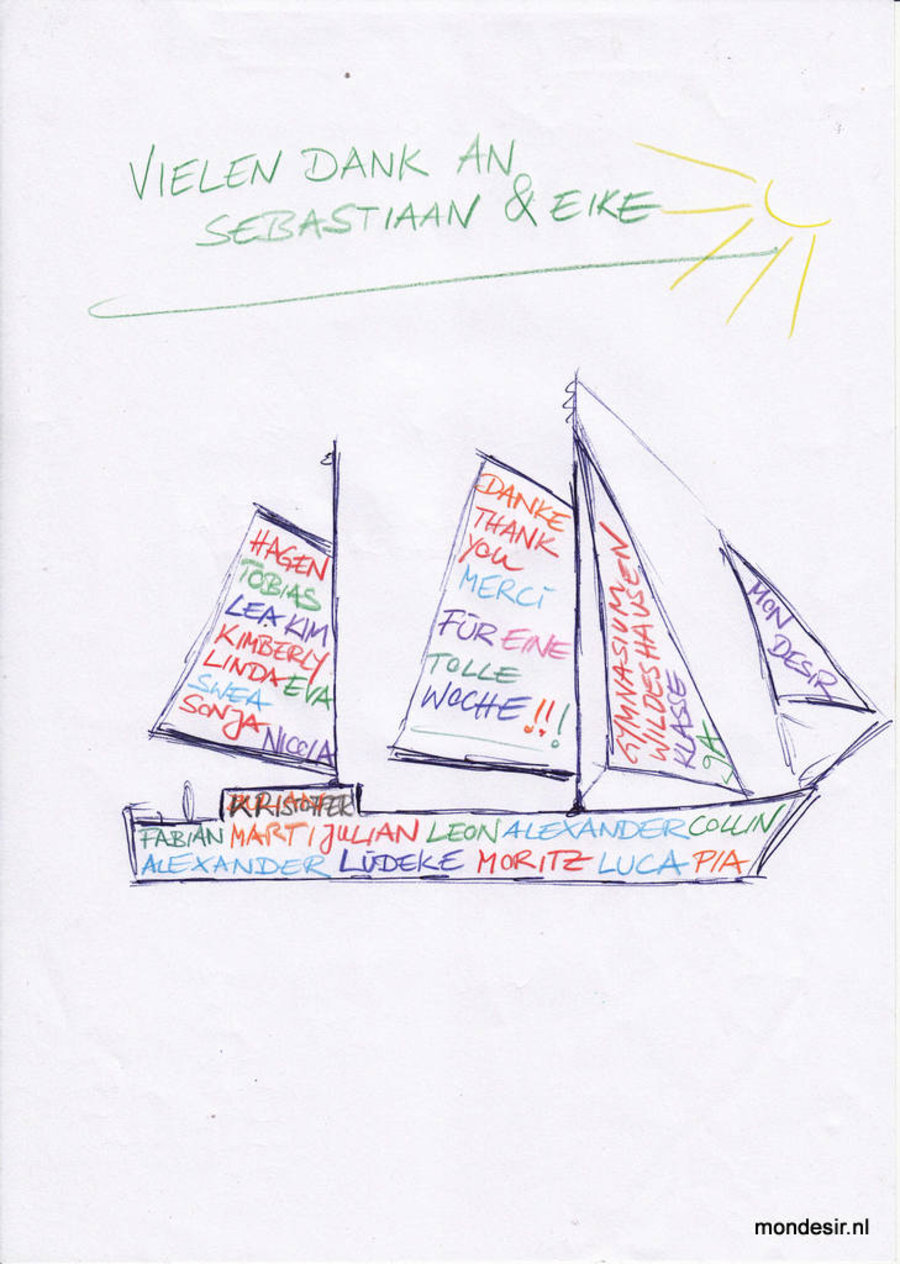 VIELEN DANK AN
SEBASTIAAN & EIKE
HAGEN
TOBIAS
LEA KIM
KIMBERLY
LINDA EVA
SWEA
SONJA
NICOLA
DANKE
THANK
YOU
MERCI
FÜR EINE
TOLLE
WOCHE !!!
GYMNASIUM
WILDESHAUSEN
KLASSE
9A
MON
DESIR
KRISTOFFER
FABIAN MARTI JULIAN LEON ALEXANDER COLLIN
ALEXANDER LÜDEKE MORITZ LUCA PIA
mondesir.nl